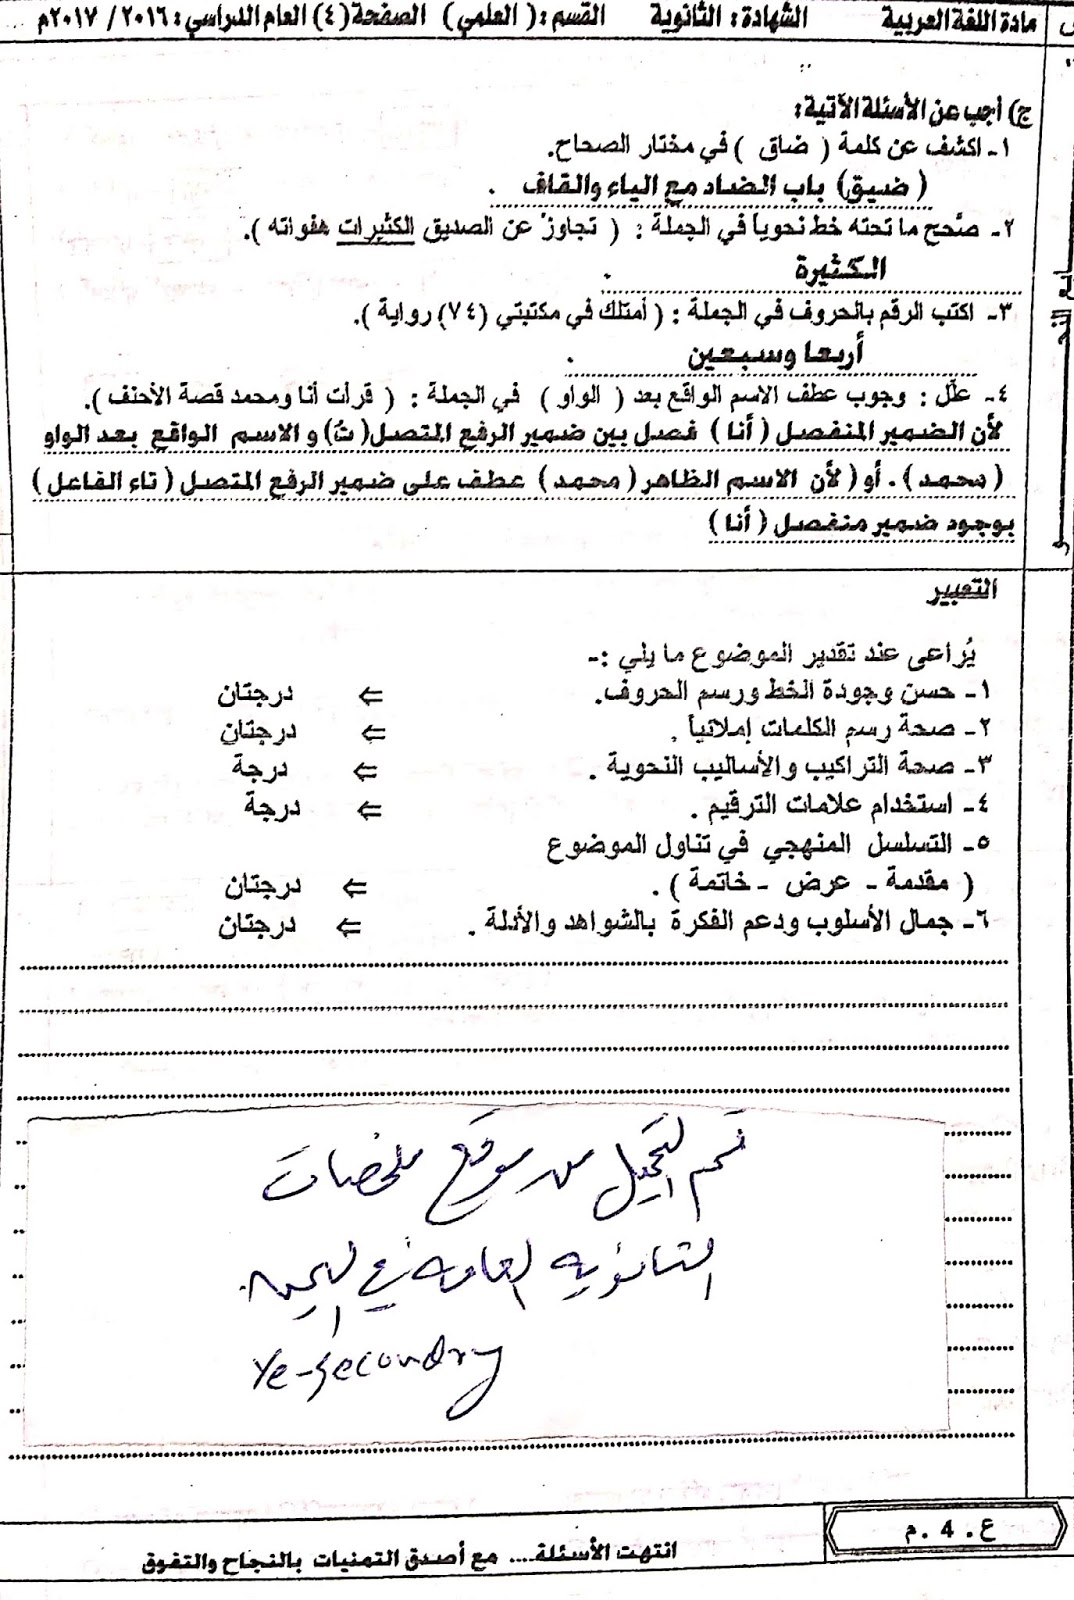 مادة اللغة العربية الشهادة: الثانوية القسم: ( العلمي ) الصفحة (٤) العام الدراسي: ٢٠١٦ / ٢٠١٧م
ج) أجب عن الأسئلة الآتية:
١- اكشف عن كلمة ( ضاق ) في مختار الصحاح.
( ضيق) باب الضاد مع الياء والقاف .
٢- صحّح ما تحته خط نحوياً في الجملة : ( تجاوزْ عن الصديق الكثيرات هفواته ).
الكثيرة .
٣- اكتب الرقم بالحروف في الجملة : ( أمتلك في مكتبتي (٧٤) رواية ).
أربعا وسبعين .
٤- علّل : وجوب عطف الاسم الواقع بعد ( الواو ) في الجملة : ( قرأت أنا ومحمد قصة الأحنف ).
لأن الضمير المنفصل ( أنا ) فصل بين ضمير الرفع المتصل( تُ) و الاسم الواقع بعد الواو
( محمد ) . أو ( لأن الاسم الظاهر ( محمد ) عطف على ضمير الرفع المتصل ( تاء الفاعل )
بوجود ضمير منفصل ( أنا )
التعبير
يُراعى عند تقدير الموضوع ما يلي :-
١- حسن وجودة الخط ورسم الحروف. ⇐ درجتان
٢- صحة رسم الكلمات إملائياً . ⇐ درجتان
٣- صحة التراكيب والأساليب النحوية . ⇐ درجة
٤- استخدام علامات الترقيم . ⇐ درجة
٥- التسلسل المنهجي في تناول الموضوع
( مقدمة - عرض - خاتمة ) . ⇐ درجتان
٦- جمال الأسلوب ودعم الفكرة بالشواهد والأدلة . ⇐ درجتان
تم التحميل من موقع ملخصات
الثانوية العامة في اليمن
Ye-secondry
ع . 4 . م
انتهت الأسئلة.... مع أصدق التمنيات بالنجاح والتفوق